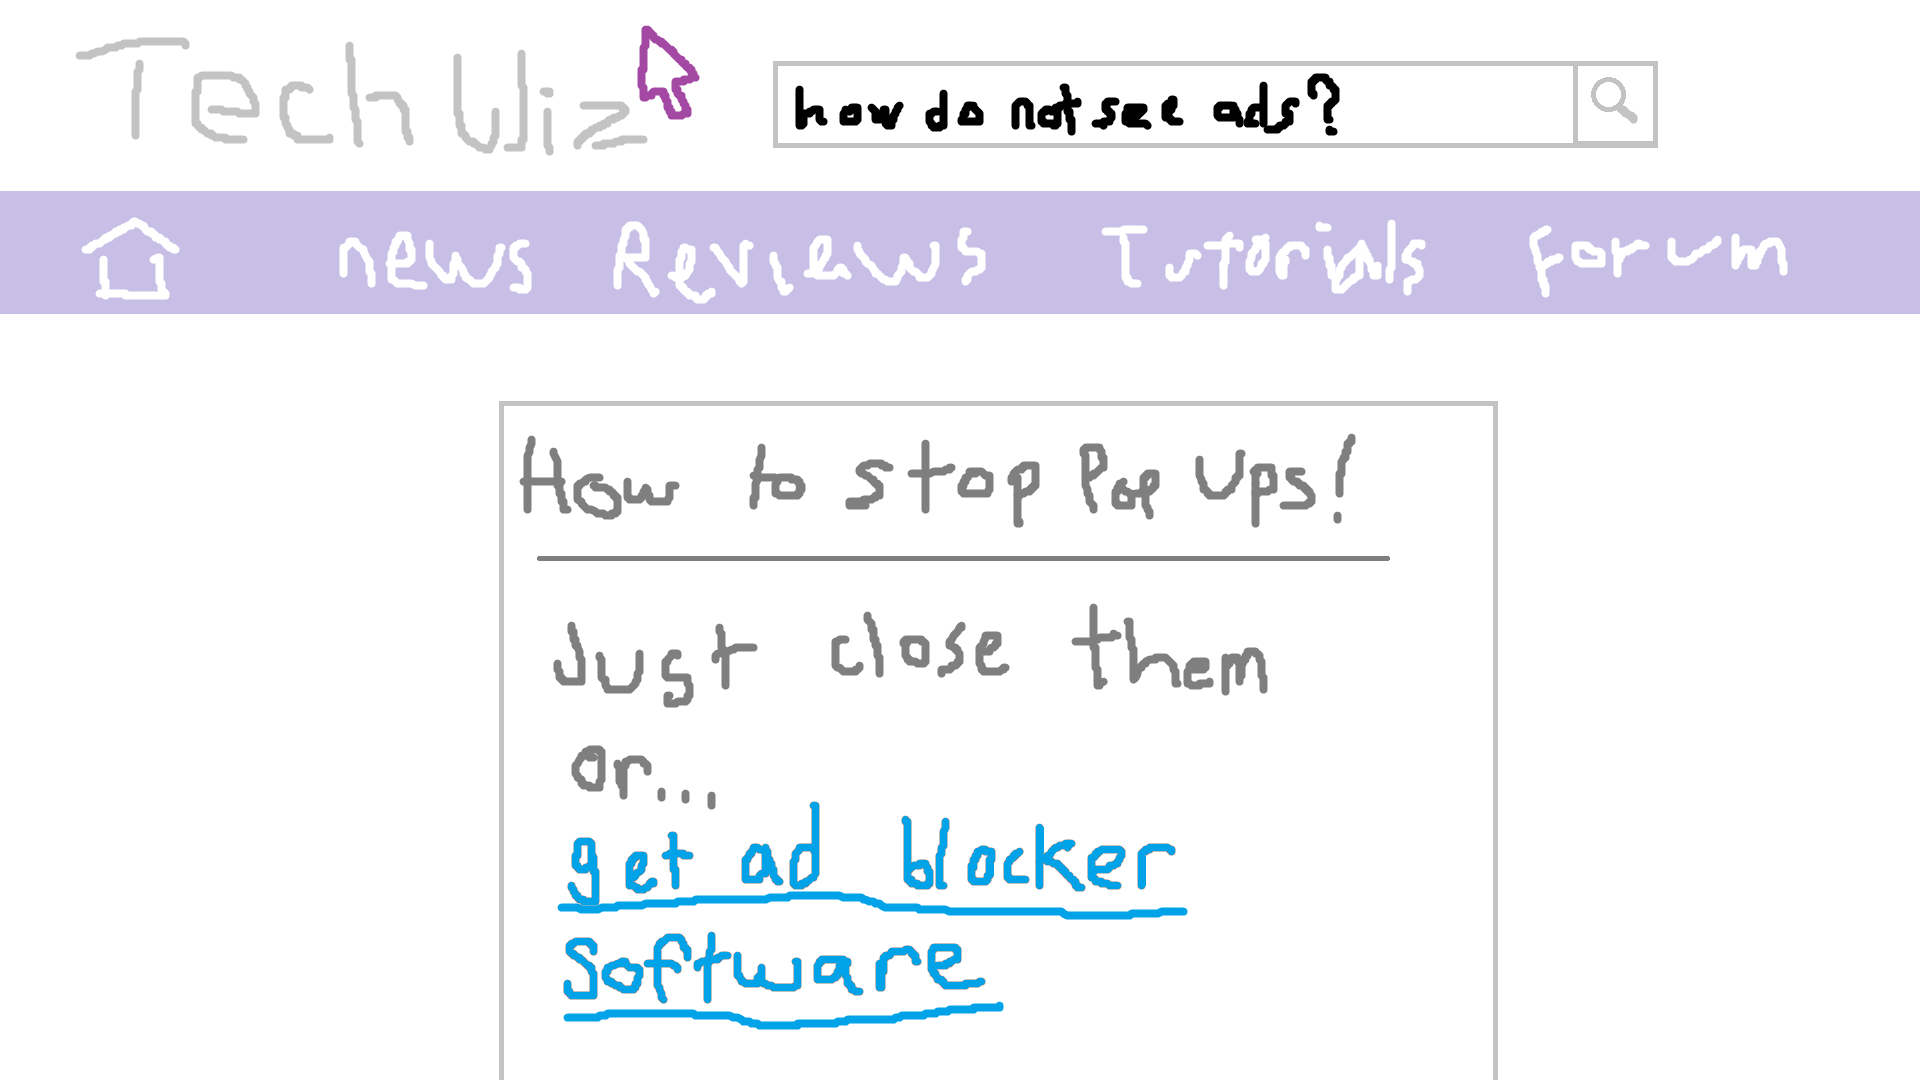 Tech Wiz
how do not see ads?
news Reviews Tutorials forum
How to stop Pop Ups!
Just close them
or...
get ad blocker
Software